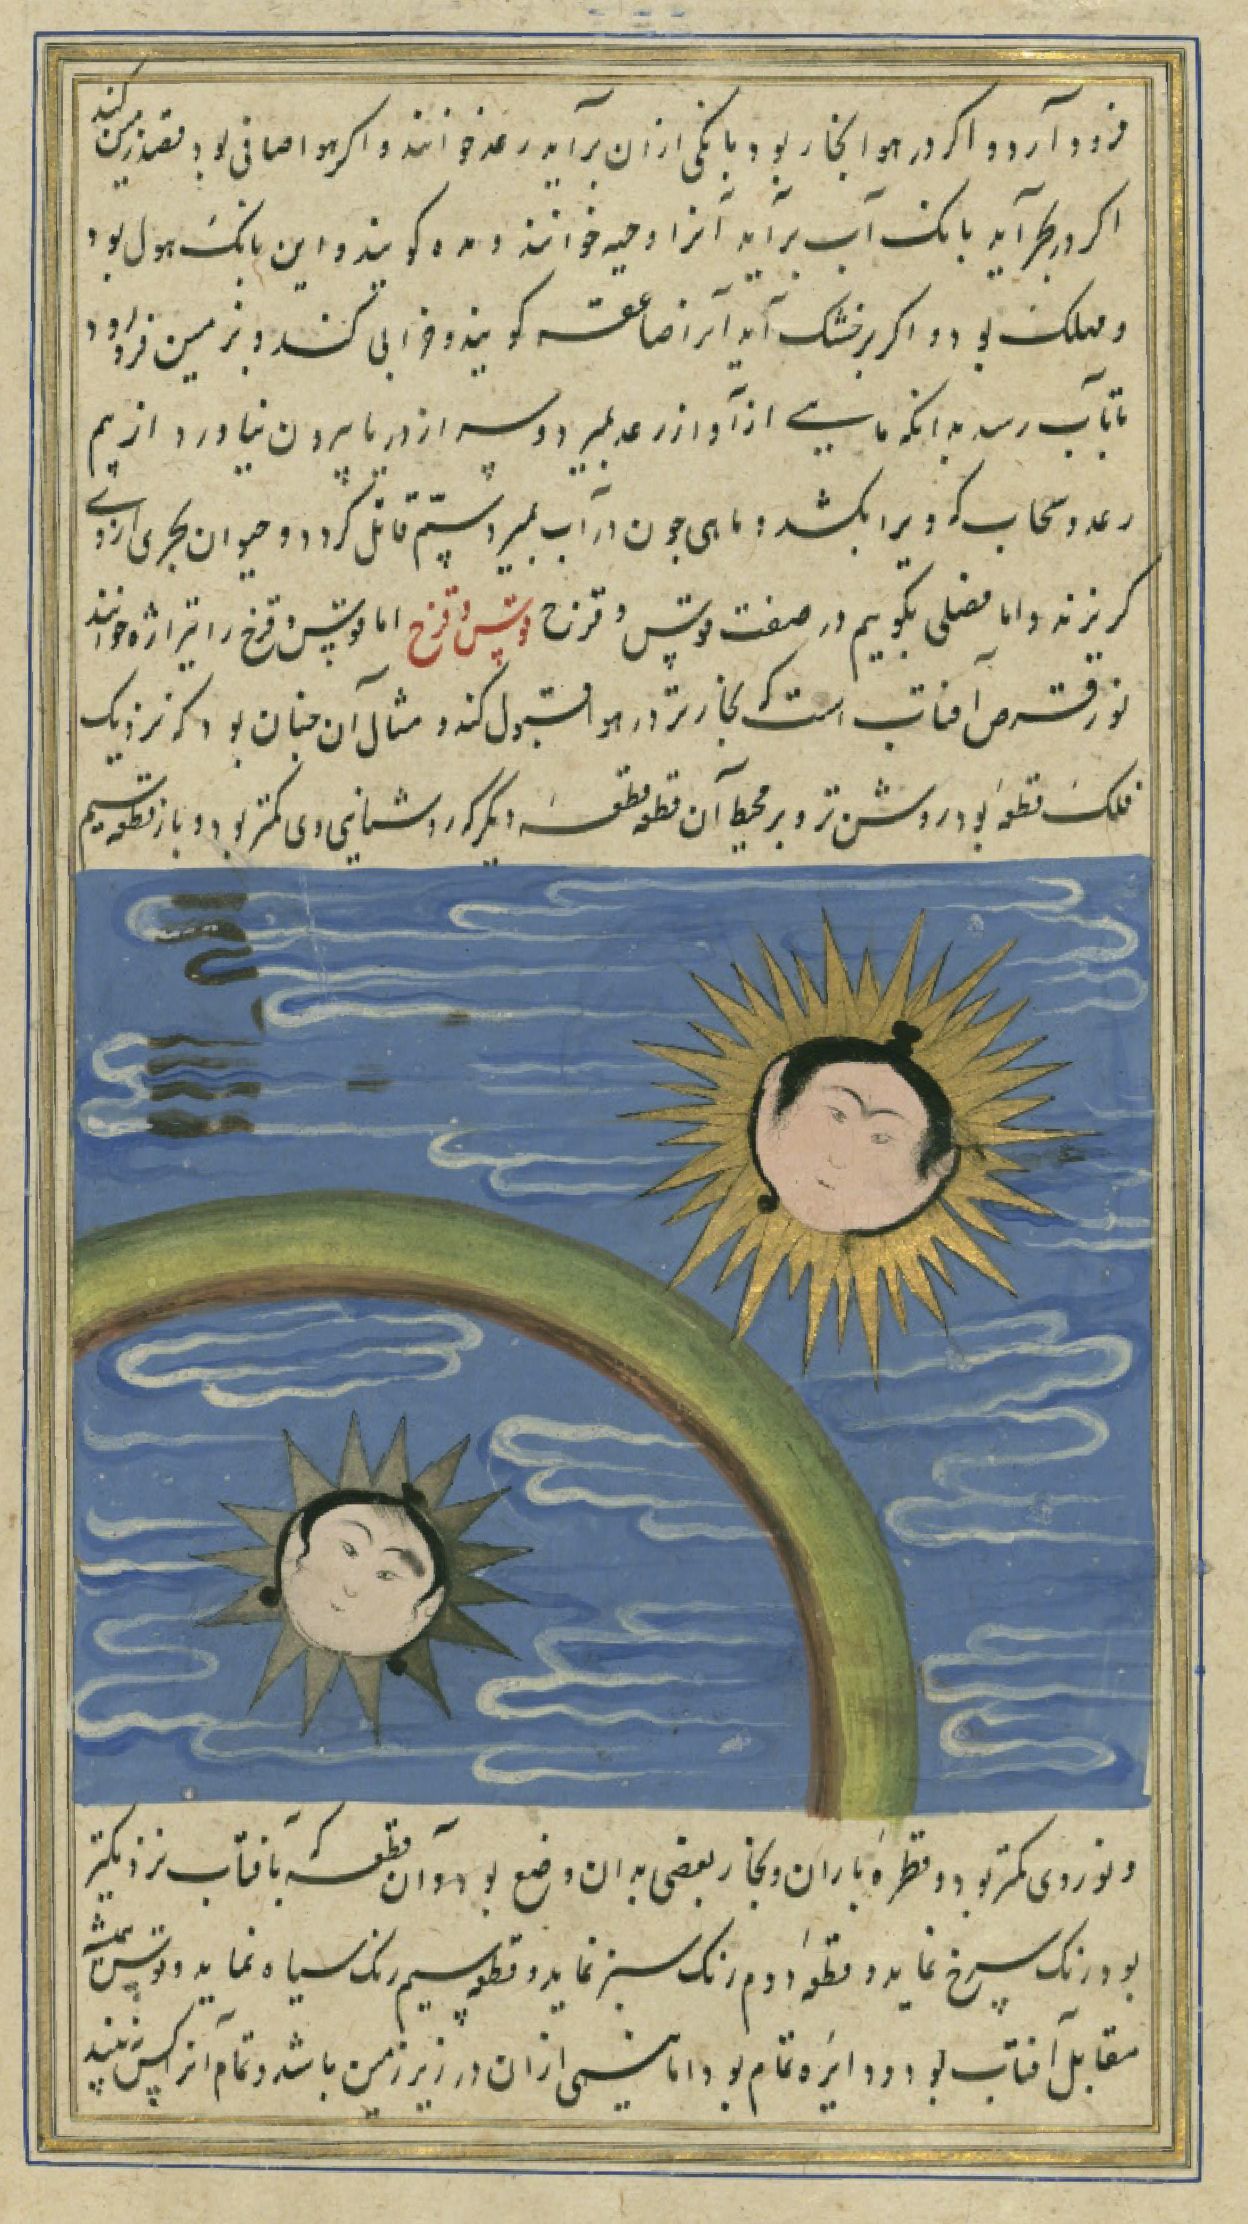 فرود آرد و اکر در هوا بخار بود بانکی ازان برآید رعد خوانند و اکر هوا صافی بود قصد زمین کند
اکر در بحر آید بانک آب برآید آنرا وحیه خوانند و مده کویند و این بانک هول بود
و مهلک بود و اکر بر خشک آید آنرا صاعقه کویند و خرابی کند و بزمین فرو رود
تا بآب رسد بدانکه ماهی از آواز رعد بمیرد و سر از دریا بیرون نیاورد از بیم
رعد و سحاب که ویرا بکشد و ماهی چون در آب بمیرد ستم قاتل کردد و حیوان بحری ازوی
کریزند و اما فصلی بکوییم در صفت قوس و قزح قوس و قزح اما قوس و قزح را تیراژه خوانند
نور قرص آفتاب است که بخار تر در هوا قبول کند و مثال آن چنان بود که نزدیک
فلک قطعه بود روشن تر و بر محیط آن قطعه قطعه دیکر که روشنایی وی کمتر بود و باز قطعه سیم
و نور وی کمتر بود و قطره باران و بخار بعضی بدان وضع بود و آن قطعه که بآفتاب نزدیکتر
بود رنک سرخ نماید و قطعه دوم رنک سبز نماید و قطعه سیم رنک سیاه نماید و قوس همیشه
مقابل آفتاب بود و دایره تمام بود اما نیمی ازان در زیر زمین باشد و تمام آنرا کس نبیند